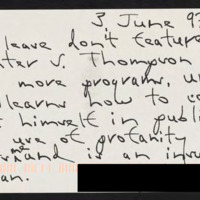 3 June 9
leave don't feature
nter S. Thompson
more programs, un
learns how to co
t himself in public
use of profanity
and is an insu
an.